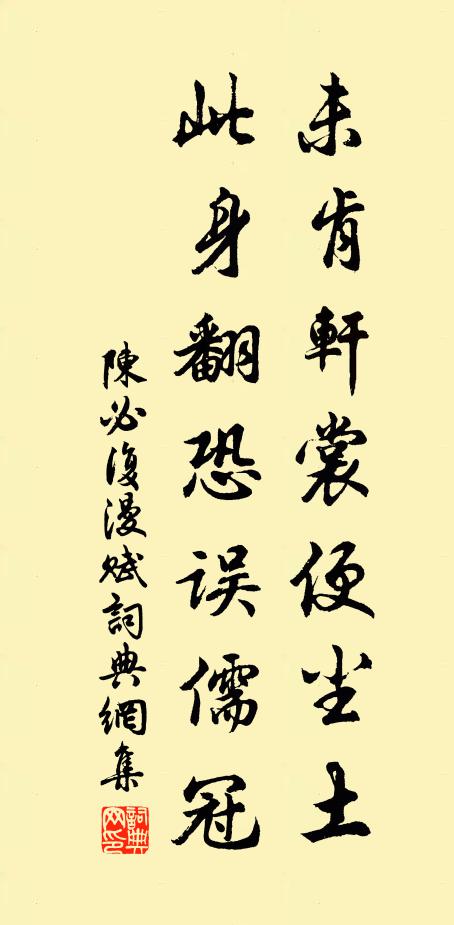 未肯軒裳便尘土
此身翻恐误儒冠
陳必復漫赋詞典網集
詞典网印